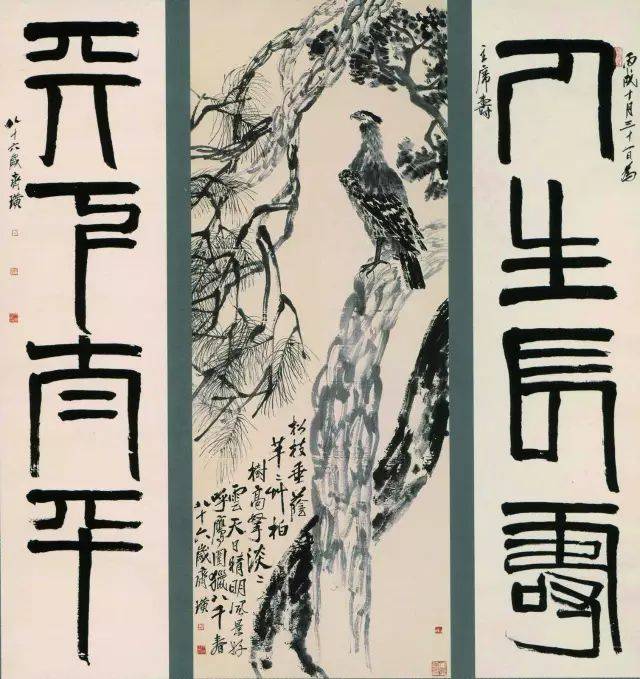 人生長壽
丙戌十月三十一日為
主席壽
松枝垂蔭
芊二艸柏
樹高擎淡二
雲天日晴明風景好
呼鷹圍獵八千春
八十六歲齊璜
天下太平
八十六歲齊璜